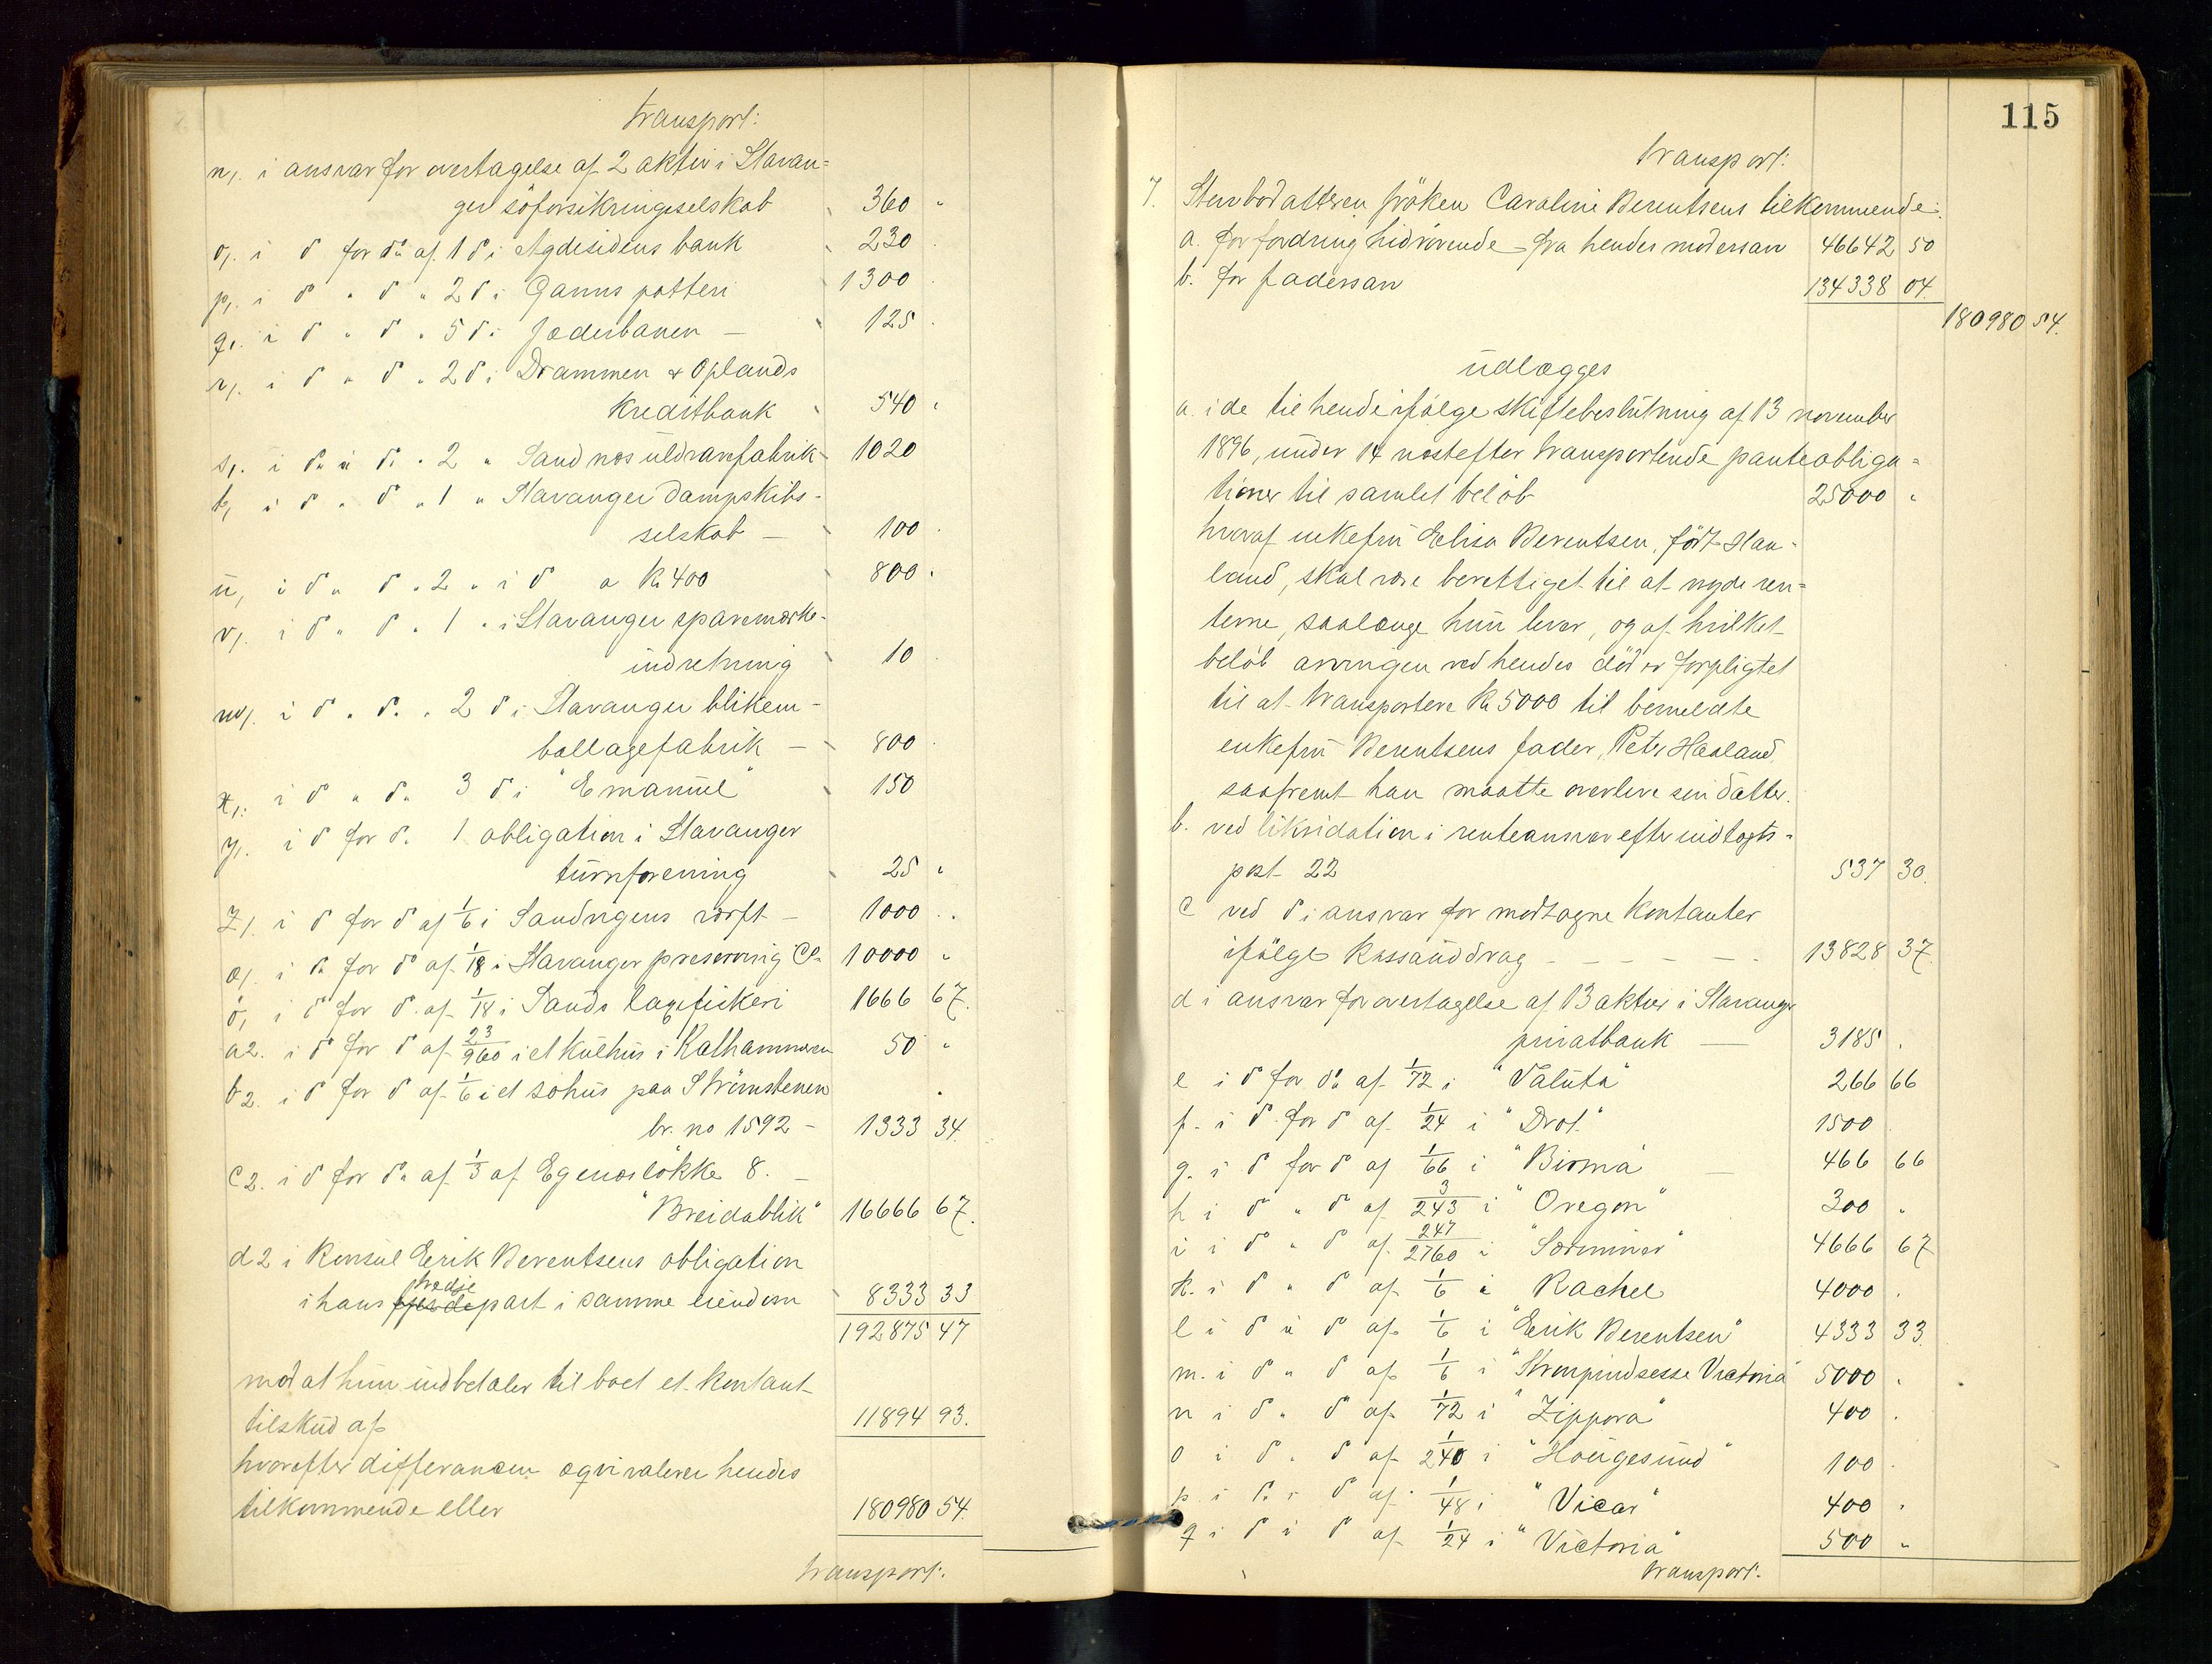 transport:
n). i ansvar for overtagelse af 2 aktier i Stavan=
ger söforsikringsselskab 360 "
o). i do for do af 1 do i Agdesidens bank 230 .
p). i do " do " 2 do i Ganns potteri 1300 .
q). i do " do " 5 do i Jæderbanen – 125 .
r). i do " do " 2 do i Drammen & Oplands
kreditbank 540 "
s). i do " do " 2 " Sandnæs uldvarefabrik 1020
t) i do " do " 1 " Stavanger dampskibs-
selskab – 100 .
u) i do " do " 2 " i do a Kr 400 800 "
v). i do " do " 1 " i Stavanger sparemærke-
indretning 10 .
w). i do " do " 2 do i Stavanger blikem-
ballagefabrik – 800 .
x). i do " do " 3 do i "Emanuel" 150
y). i do for do 1 obligation i Stavanger
turnforening 25 "
z). i do for do af 1/6 i Sandvigens værft – 1000 . .
æ). i do for do af 1/18 i Stavanger preserving Co 10000 "
ö). i do for do af 1/18 i Sands laxefiskeri 1666 67.
a2. i do for do af 23/960 i et kulhus i Kalhammeren 50 "
b2. i do for do af 1/6 i et söhus paa Strömstenen "
br. no 1592 – 1333 34.
c2. i do for do af 1/3 af Egenæslökke 8. –
"Breidablik" 16666 67.
d2 i Konsul Erik Berentsens obligation
tredje
i hans part i samme eiendom 8333 33
192875 47
mod at hun indbetaler til boet et kontant
tilskud af 11894 93.
hvorefter differancen æqvivalerer hendes
tilkommende eller 180980 54.
transport:
115
transport:
7. Stervboddatteren fröken Caroline Berentsens tilkommende:
a. for fordring hidrörende fra hendes mödrearv 46642 50
b. for fædrearv 134338 04.
180980 54.
udlægges
a. i de til hende ifölge skiftebeslutning af 13 november
1896, under 14 næstefter transporterede panteobliga=
tioner til samlet belöb 25000 "
hvoraf enkefru Elisa Berentsen, född Haa-
land, skal være berettiget til at nyde ren=
terne, saalænge hun lever, og af hvilket
belöb arvingen ved hendes död er forpligtet
til at transportere Kr 5000 til bemeldte
enkefru Berentsens fader, Peter Haaland,
saafremt han maatte overleve sin datter.
b. ved likvidation i renteansvar efter indtægts-
post 22 537 30.
c ved do i ansvar for modtagne kontanter
ifölge kassauddrag – – – – – – 13828 37.
d i ansvar for overtagelse af 13 aktier i Stavanger
privatbank — 3185 .
e i do for do af 1/72 i "Valuta" 266 66
f. i do for do af 1/24 i "Drot" 1500
g. i do for do af 1/66 i "Birma" – 466 66
h i do " do af 3/243 i "Oregon" 300 "
i i do " do af 247/2760 i "Særimner" 4666 67
k. i do " do af 1/6 i Rachel 4000 .
l i do " do af 1/6 i "Erik Berentsen" 4333 33.
m. i do " do af 1/6 i "Kronprindsesse Victoria" 5000 "
n i do " do af 1/72 i "Zippora" 400 .
o i do " do af 1/240 i "Haugesund" 100 .
p i do " do af 1/48 i "Vicar" 400 "
q i do i do af 1/24 i "Victoria" 500 "
transport: